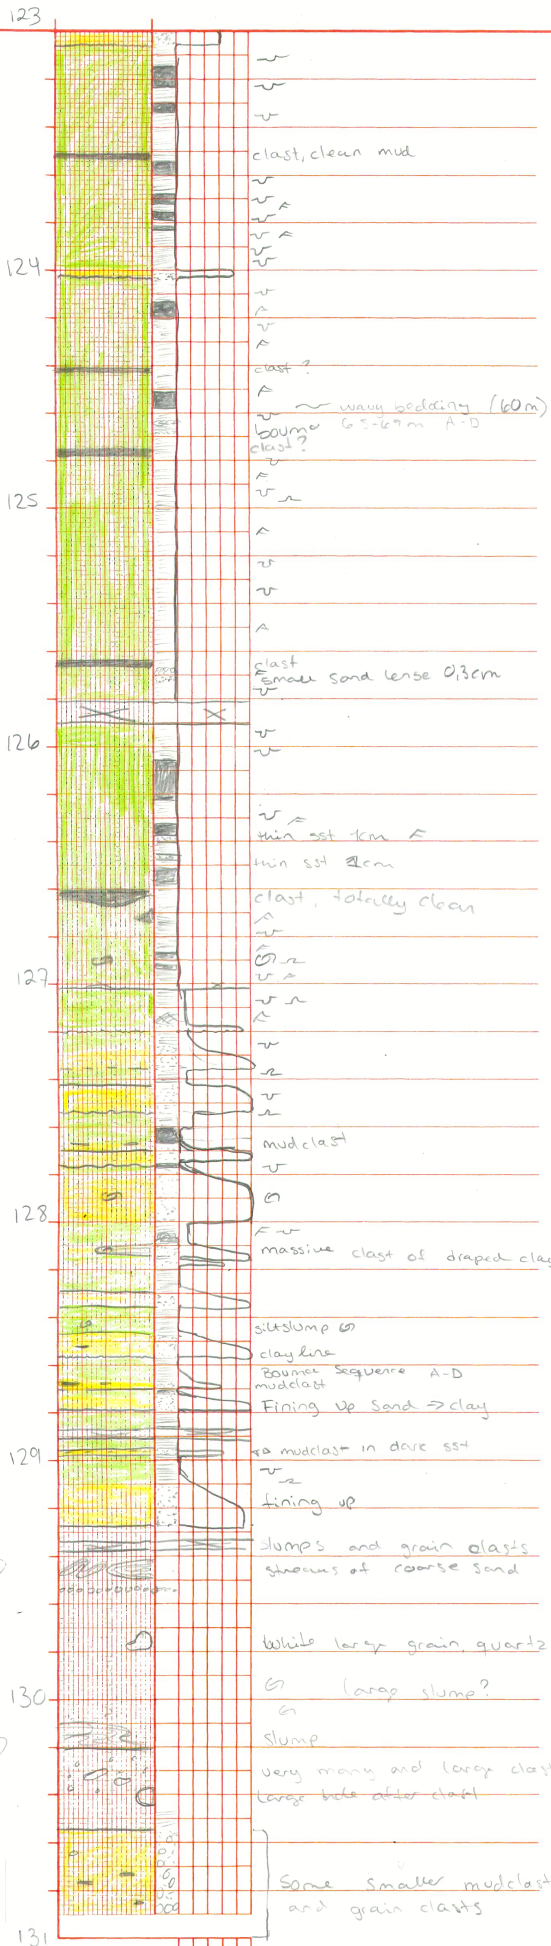 123
clast, clean mud
124
clast ?
wavy bedding (60m)
bouma 65-69m A-D
clast?
125
clast
small sand lense 0,3cm
126
thin sst 1cm
thin sst 2cm
clast, totally clean
127
mudclast
128
massive clast of draped clay
siltslump
clay line
Bouma Sequence A-D
mudclast
Fining up Sand → clay
129
mudclast in dark sst
fining up
slumps and grain clasts
streaks of coarse sand
White large grain, quartz
130
large slump?
slump
very many and large clast
large hole after clast
Some smaller mudclast
and grain clasts
131